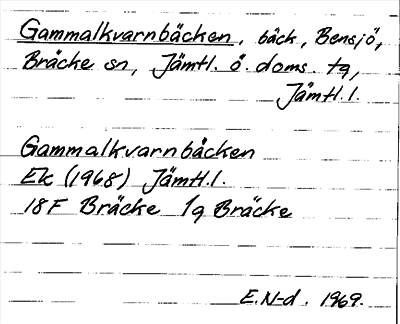 Gammalkvarnbäcken, bäck, Bensjö,
Bräcke sn, Jämtl. ö. doms. tg,
Jämtl. l.
Gammalkvarnbäcken
Ek (1968) Jämtl. l.
18F Bräcke 1g Bräcke
E.N-d. 1969.